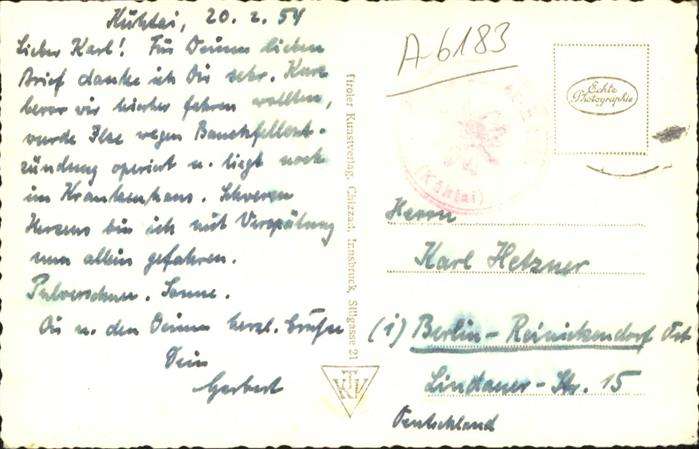 Kühtai, 20. 2. 54
Lieber Karl! Für Deinen lieben
Brief danke ich Dir sehr. Kurz
bevor wir hierher fahren wollten,
wurde Ilse wegen Bauchfellent-
zündung operiert u. liegt noch
im Krankenhaus. Schweren
Herzens bin ich mit Verspätung
nun allein gefahren.
Pulverschnee. Sonne.
Dir u. den Deinen herzl. Grüße
Dein
Herbert
Tiroler Kunstverlag, Chizzali, Innsbruck, Sillgasse 21
TKV
A-6183
(Kühtai)
Echte
Photographie
Herrn
Karl Hetzner
(1) Berlin-Reinickendorf Ost
Lindauer-Str. 15
Deutschland